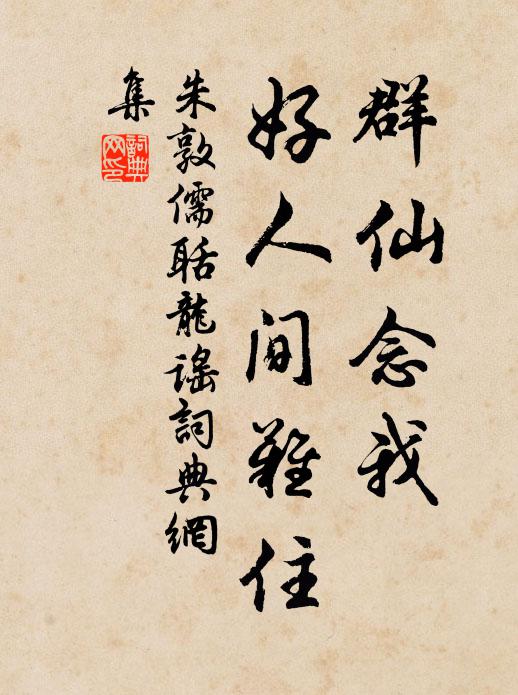 群仙念我
好人间難住
朱敦儒聒龍谣詞典網
集
詞典
网印